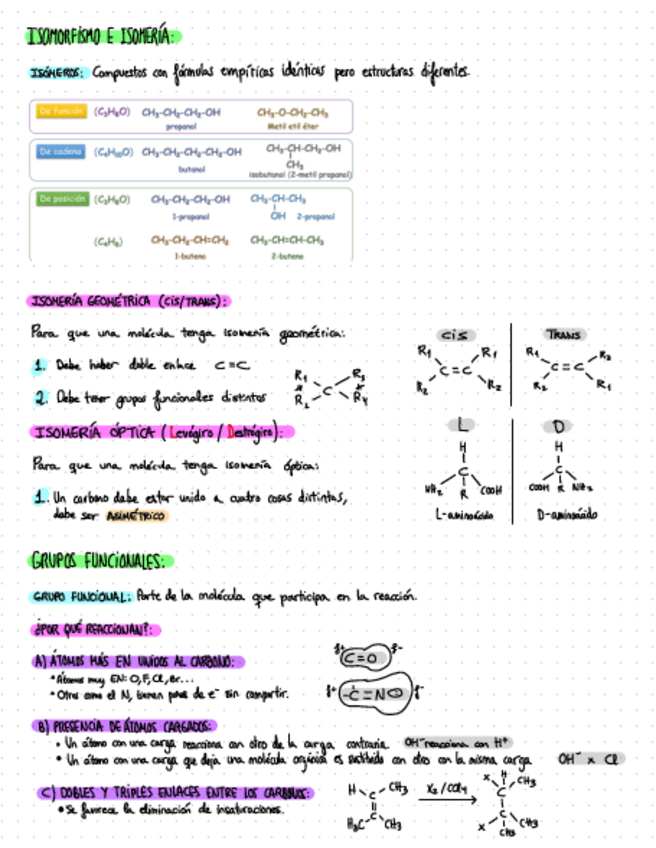 ISOMORFISMO E ISOMERÍA:
ISÓMEROS: Compuestos con fórmulas empíricas idénticas pero estructuras diferentes.
De función (C₃H₈O) CH₃-CH₂-CH₂-OH CH₃-O-CH₂-CH₃
propanol Metil etil éter
De cadena (C₄H₁₀O) CH₃-CH₂-CH₂-CH₂-OH CH₃-CH-CH₂-OH
CH₃
butanol isobutanol (2-metil propanol)
De posición (C₃H₈O) CH₃-CH₂-CH₂-OH CH₃-CH-CH₃
OH
1-propanol 2-propanol
(C₄H₈) CH₃-CH₂-CH=CH₂ CH₃-CH=CH-CH₃
1-buteno 2-buteno
ISOMERÍA GEOMÉTRICA (cis/TRANS):
Para que una molécula tenga isomería geométrica:
1. Debe haber doble enlace C=C
2. Debe tener grupos funcionales distintos
R₁ R₃
C
R₂ R₄
cis TRANS
R₁ R₁ R₁ R₂
C=C C=C
R₂ R₂ R₂ R₁
ISOMERÍA ÓPTICA (Levógiro / Destrógiro):
Para que una molécula tenga isomería óptica:
1. Un carbono debe estar unido a cuatro cosas distintas,
debe ser ASIMÉTRICO
L D
H H
C C
NH₂ R COOH COOH R NH₂
L-aminoácido D-aminoácido
GRUPOS FUNCIONALES:
GRUPO FUNCIONAL: Parte de la molécula que participa en la reacción.
¿POR QUÉ REACCIONAN?:
A) ÁTOMOS MÁS EN UNIDOS AL CARBONO:
• Átomos muy EN: O, F, Cl, Br...
• Otros como el N, tienen pares de e⁻ sin compartir.
δ⁺ C=O δ⁻
δ⁺ -C=N δ⁻
B) PRESENCIA DE ÁTOMOS CARGADOS:
• Un átomo con una carga reacciona con otro de la carga contraria. OH⁻ reacciona con H⁺
• Un átomo con una carga que deja una molécula orgánica es sustituido con otro con la misma carga OH⁻ x Cl
C) DOBLES Y TRIPLES ENLACES ENTRE LOS CARBONOS:
• Se favorece la eliminación de insaturaciones.
H C CH₃ X₂/CCl₄ X H C CH₃
H₃C C CH₃ X C CH₃
CH₃